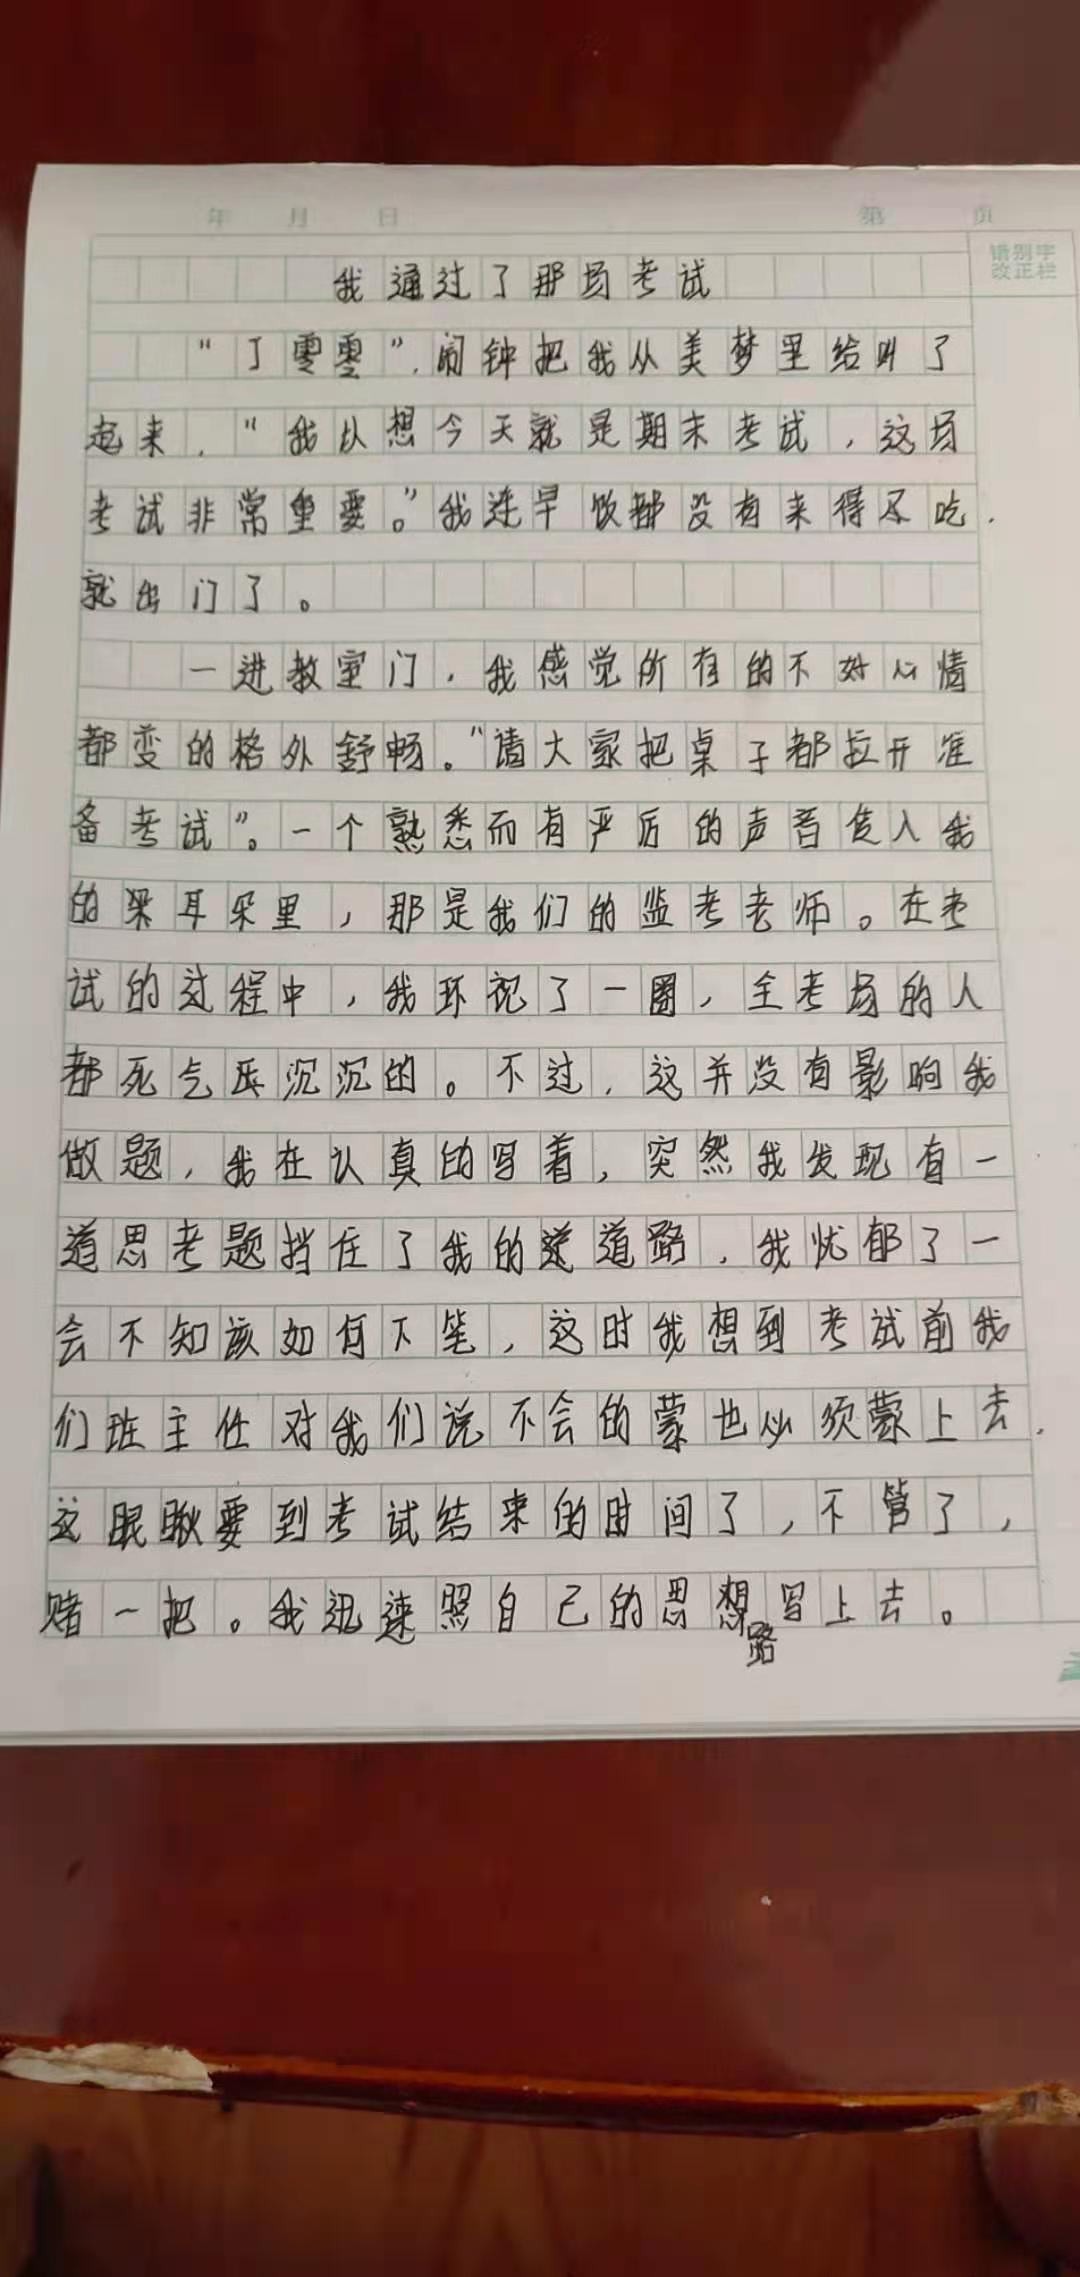 年 月 日 第 页
错别字
改正栏
我通过了那场考试
“丁零零”,闹钟把我从美梦里给叫了
起来,“我从想今天就是期末考试,这场
考试非常重要。”我连早饭都没有来得及吃,
就出门了。
一进教室门,我感觉所有的不好心情
都变的格外舒畅。“请大家把桌子都拉开准
备考试”。一个熟悉而有严厉的声音传入我
的耳朵里,那是我们的监考老师。在考
试的过程中,我环视了一圈,全考场的人
都死气沉沉的。不过,这并没有影响我
做题,我在认真的写着,突然我发现有一
道思考题挡住了我的道路,我忧郁了一
会不知该如何下笔,这时我想到考试前我
们班主任对我们说不会的蒙也必须蒙上去,
这眼瞅要到考试结束的时间了,不管了,
赌一把。我迅速照自己的思路写上去。